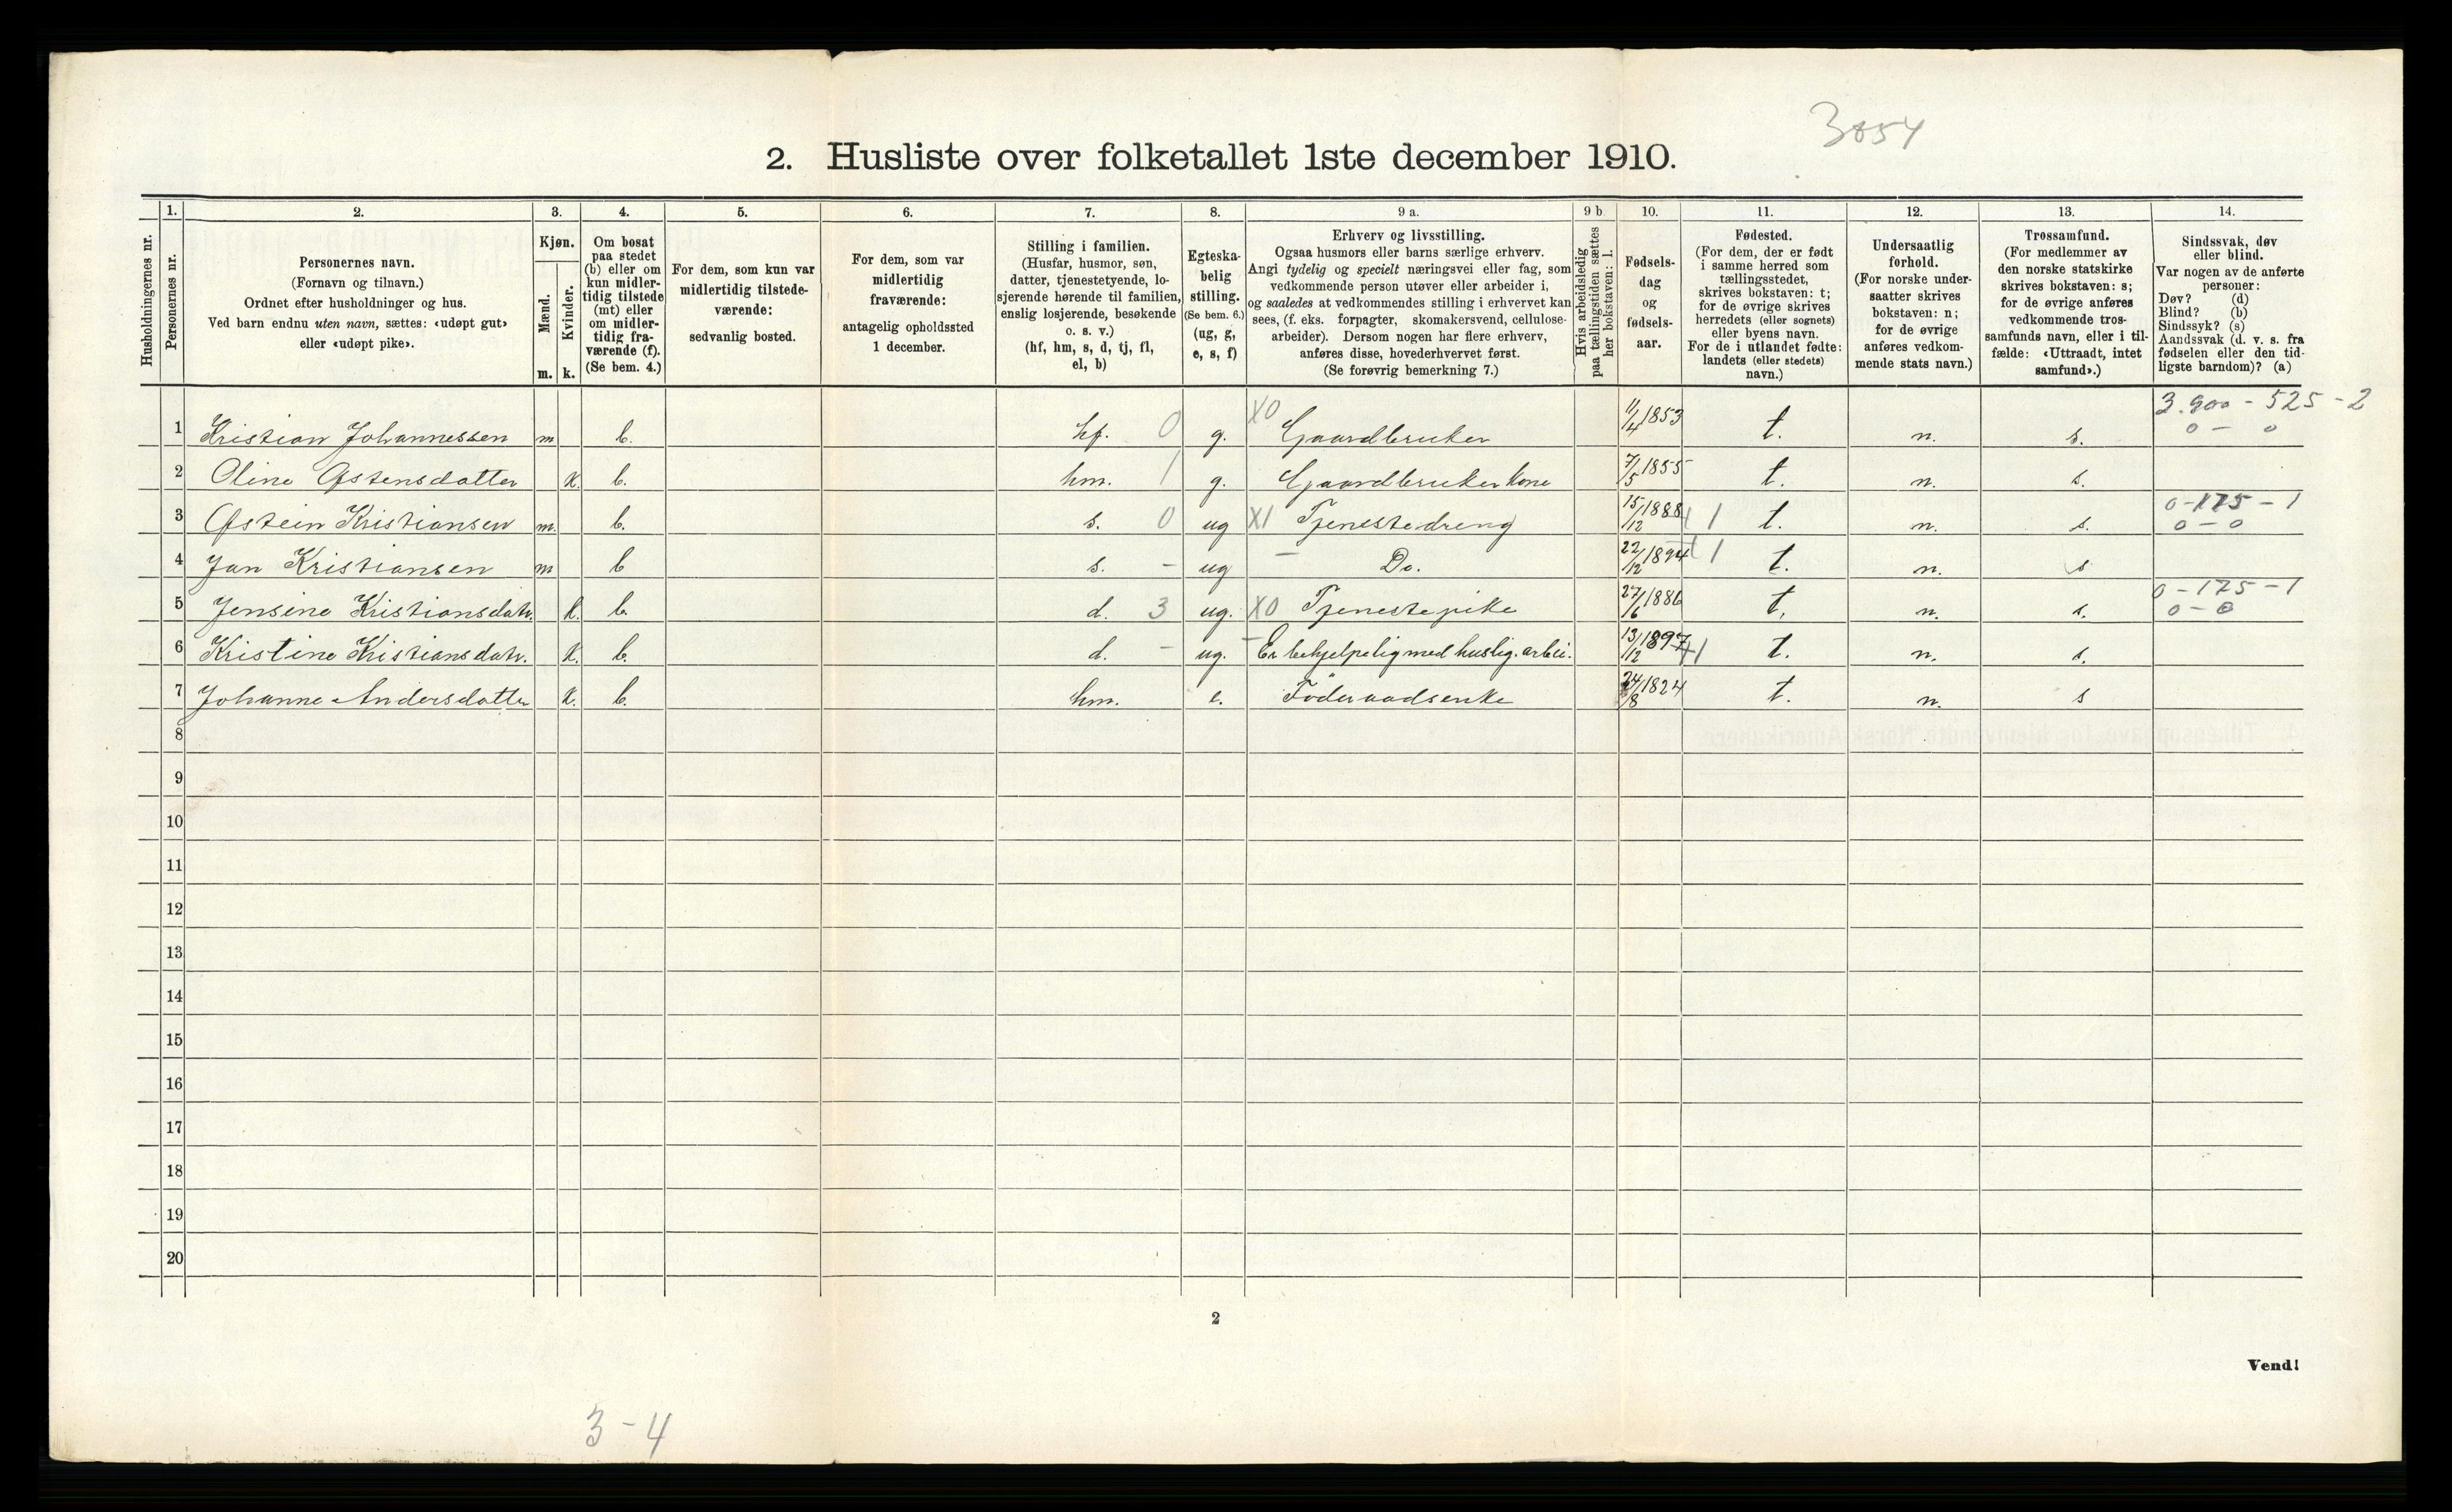 3854
2. Husliste over folketallet 1ste december 1910.
Husholdningernes nr.
1.
Personernes nr.
2.
Personernes navn.
(Fornavn og tilnavn.)
Ordnet efter husholdninger og hus.
Ved barn endnu uten navn, sættes: «udøpt gut»
eller «udøpt pike».
3.
Kjøn.
Mænd.
Kvinder.
m. k.
4.
Om bosat
paa stedet
(b) eller om
kun midler-
tidig tilstede
(mt) eller
om midler-
tidig fra-
værende (f).
(Se bem. 4.)
5.
For dem, som kun var
midlertidig tilstede-
værende:
sedvanlig bosted.
6.
For dem, som var
midlertidig
fraværende:
antagelig opholdssted
1 december.
7.
Stilling i familien.
(Husfar, husmor, søn,
datter, tjenestetyende, lo-
sjerende hørende til familien,
enslig losjerende, besøkende
o. s. v.)
(hf, hm, s, d, tj, fl,
el, b)
8.
Egteska-
belig
stilling.
(Se bem. 6.)
(ug, g,
e, s, f)
9 a.
Erhverv og livsstilling.
Ogsaa husmors eller barns særlige erhverv.
Angi tydelig og specielt næringsvei eller fag, som
vedkommende person utøver eller arbeider i,
og saaledes at vedkommendes stilling i erhvervet kan
sees, (f. eks. forpagter, skomakersvend, cellulose-
arbeider). Dersom nogen har flere erhverv,
anføres disse, hovederhvervet først.
(Se forøvrig bemerkning 7.)
9 b
Hvis arbeidsledig
paa tællingstiden sættes
her bokstaven: l.
10.
Fødsels-
dag
og
fødsels-
aar.
11.
Fødested.
(For dem, der er født
i samme herred som
tællingsstedet,
skrives bokstaven: t;
for de øvrige skrives
herredets (eller sognets)
eller byens navn.
For de i utlandet fødte:
landets (eller stedets)
navn.)
12.
Undersaatlig
forhold.
(For norske under-
saatter skrives
bokstaven: n;
for de øvrige
anføres vedkom-
mende stats navn.)
13.
Trossamfund.
(For medlemmer av
den norske statskirke
skrives bokstaven: s;
for de øvrige anføres
vedkommende tros-
samfunds navn, eller i til-
fælde: «Uttraadt, intet
samfund».)
14.
Sindssvak, døv
eller blind.
Var nogen av de anførte
personer:
Døv? (d)
Blind? (b)
Sindssyk? (s)
Aandssvak (d. v. s. fra
fødselen eller den tid-
ligste barndom)? (a)
1 Kristian Johannessen m b. hf. 0 g. X0 Gaardbruker 11/4 1853 t. n. s. 3.900 - 525 - 2
0 - 0
2 Oline Østensdatter k. b. hm. 1 g. Gaardbruker kone 7/5 1855 t. n. s.
3 Østein Kristiansen m. b. s. 0 ug X1 Tjenestedreng 15/12 1888 1 t. n. s. 0-175 - 1
0 - 0
4 Jan Kristiansen m b s. - ug - Do. 22/12 1894 1 t. n. s
5 Jensine Kristiansdatr. k. b. d. 3 ug. X0 Tjenestepike 27/6 1886 t. n. s. 0-175-1
0-0
6 Kristine Kristiansdatr. k. b. d. - ug. - Er behjelpelig med huslig. arbei. 13/12 1897 1 t. n. s.
7 Johanne Andersdatter k. b. hm. e. Föderaadsenke 24/8 1824 t. n. s
8
9
10
11
12
13
14
15
16
17
18
19
20
2
Vend!
3-4